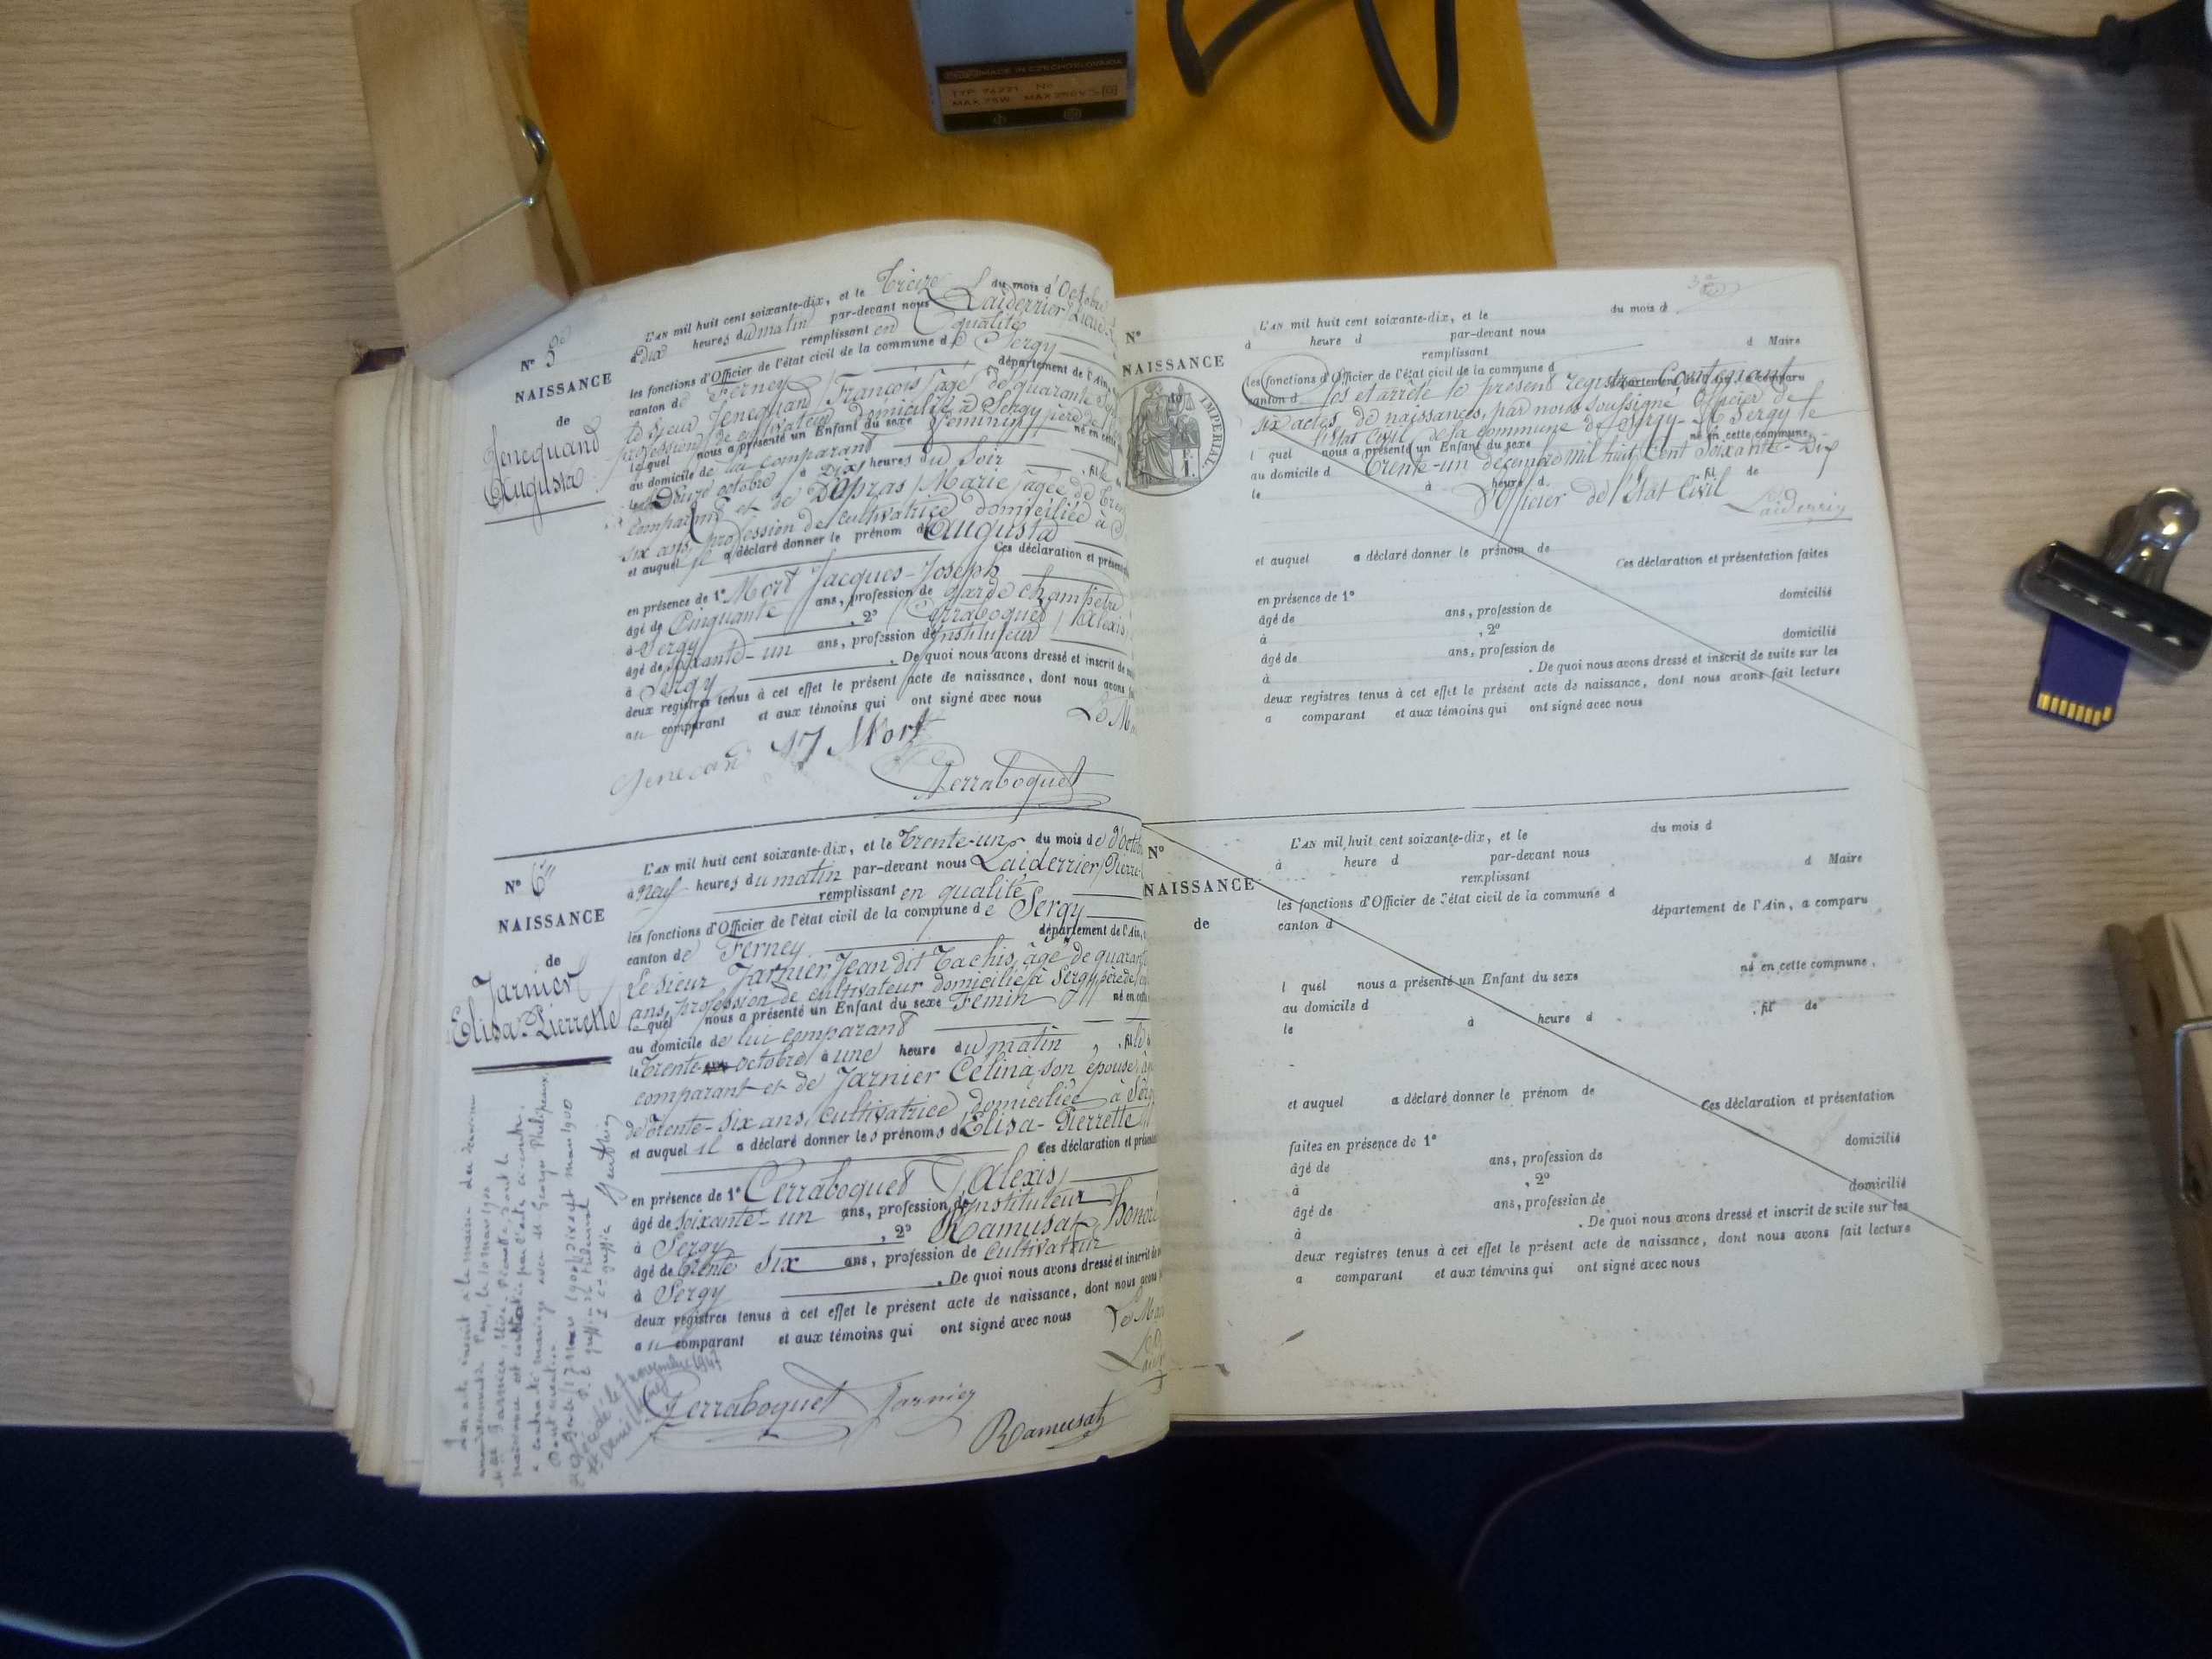 MADE IN CZECHOSLOVAKIA
TYP
MAX 75W MAX 250V
N° 5
NAISSANCE
de
Jenequand
Augusta
L'AN mil huit cent soixante-dix, et le Treize du mois d'Octobre
à dix heures du matin par-devant nous Laiderrier
remplissant en qualité
les fonctions d'Officier de l'état civil de la commune de Sergy
canton de Ferney département de l'Ain,
le sieur Jenequand François âgé de quarante
profession de cultivateur domicilié à Sergy père de
lequel nous a présenté un Enfant du sexe Féminin né en cette
au domicile de lui comparant
le Douze octobre à Dix heures du soir , fil
comparant et de Dupras Marie âgée de
six ans, profession de cultivatrice domiciliée à
et auquel il a déclaré donner le prénom d'Augusta
Ces déclaration et
en présence de 1° Mort Jacques-Joseph
âgé de Cinquante ans, profession de garde champêtre
à Sergy , 2° Perraboquet Alexis,
âgé de soixante-un ans, profession de Instituteur
à Sergy . De quoi nous avons dressé et inscrit de
deux registres tenus à cet effet le présent acte de naissance, dont nous avons
au comparant et aux témoins qui ont signé avec nous
Mort
Perraboquet
N° 6
NAISSANCE
de
Jarnier
Elisa-Pierrette
L'AN mil huit cent soixante-dix, et le Trente-un du mois d'Octobre
à neuf heures du matin par-devant nous Laiderrier Pierre
remplissant en qualité
les fonctions d'Officier de l'état civil de la commune de Sergy
canton de Ferney département de l'Ain,
Le sieur Jarnier Jean dit Tachis, âgé de
ans, profession de cultivateur domicilié à Sergy, père de
lequel nous a présenté un Enfant du sexe Féminin né en cette
au domicile de lui comparant
le Trente octobre à une heure du matin , fil
comparant et de Jarnier Célina, son épouse
de Trente-six ans, cultivatrice domiciliée à Sergy
et auquel il a déclaré donner les prénoms d'Elisa-Pierrette
Ces déclaration et
en présence de 1° Perraboquet Alexis
âgé de soixante-un ans, profession de Instituteur
à Sergy , 2° Ramusat, Honoré
âgé de trente six ans, profession de cultivateur
à Sergy . De quoi nous avons dressé et inscrit de
deux registres tenus à cet effet le présent acte de naissance, dont nous avons
au comparant et aux témoins qui ont signé avec nous
Perraboquet Jarnier
Ramusat
Décédée le novembre 1947
N°
NAISSANCE
IMPERIAL.
L'AN mil huit cent soixante-dix, et le du mois d
à heure d par-devant nous d Maire
remplissant
les fonctions d'Officier de l'état civil de la commune d
canton d département de l'Ain, a comparu
Clos et arrêté le présent registre Contenant
six actes de naissances, par nous soussigné Officier de
l'Etat Civil de la commune de Sergy. A Sergy le
trente-un décembre mil huit Cent Soixante-Dix
L'Officier de l'Etat Civil
Laiderrier
l quel nous a présenté un Enfant du sexe né en cette commune,
au domicile d
le à heure d , fil de
et auquel a déclaré donner le prénom de
Ces déclaration et présentation faites
en présence de 1° domicilié
âgé de ans, profession de
à , 2° domicilié
âgé de ans, profession de
à . De quoi nous avons dressé et inscrit de suite sur les
deux registres tenus à cet effet le présent acte de naissance, dont nous avons fait lecture
a comparant et aux témoins qui ont signé avec nous
N°
NAISSANCE
de
L'AN mil huit cent soixante-dix, et le du mois d
à heure d par-devant nous d Maire
remplissant
les fonctions d'Officier de l'état civil de la commune d
canton d département de l'Ain, a comparu
l quel nous a présenté un Enfant du sexe né en cette commune,
au domicile d
le à heure d , fil de
et auquel a déclaré donner le prénom de
Ces déclaration et présentation
faites en présence de 1° domicilié
âgé de ans, profession de
à , 2° domicilié
âgé de ans, profession de
à . De quoi nous avons dressé et inscrit de suite sur les
deux registres tenus à cet effet le présent acte de naissance, dont nous avons fait lecture
a comparant et aux témoins qui ont signé avec nous